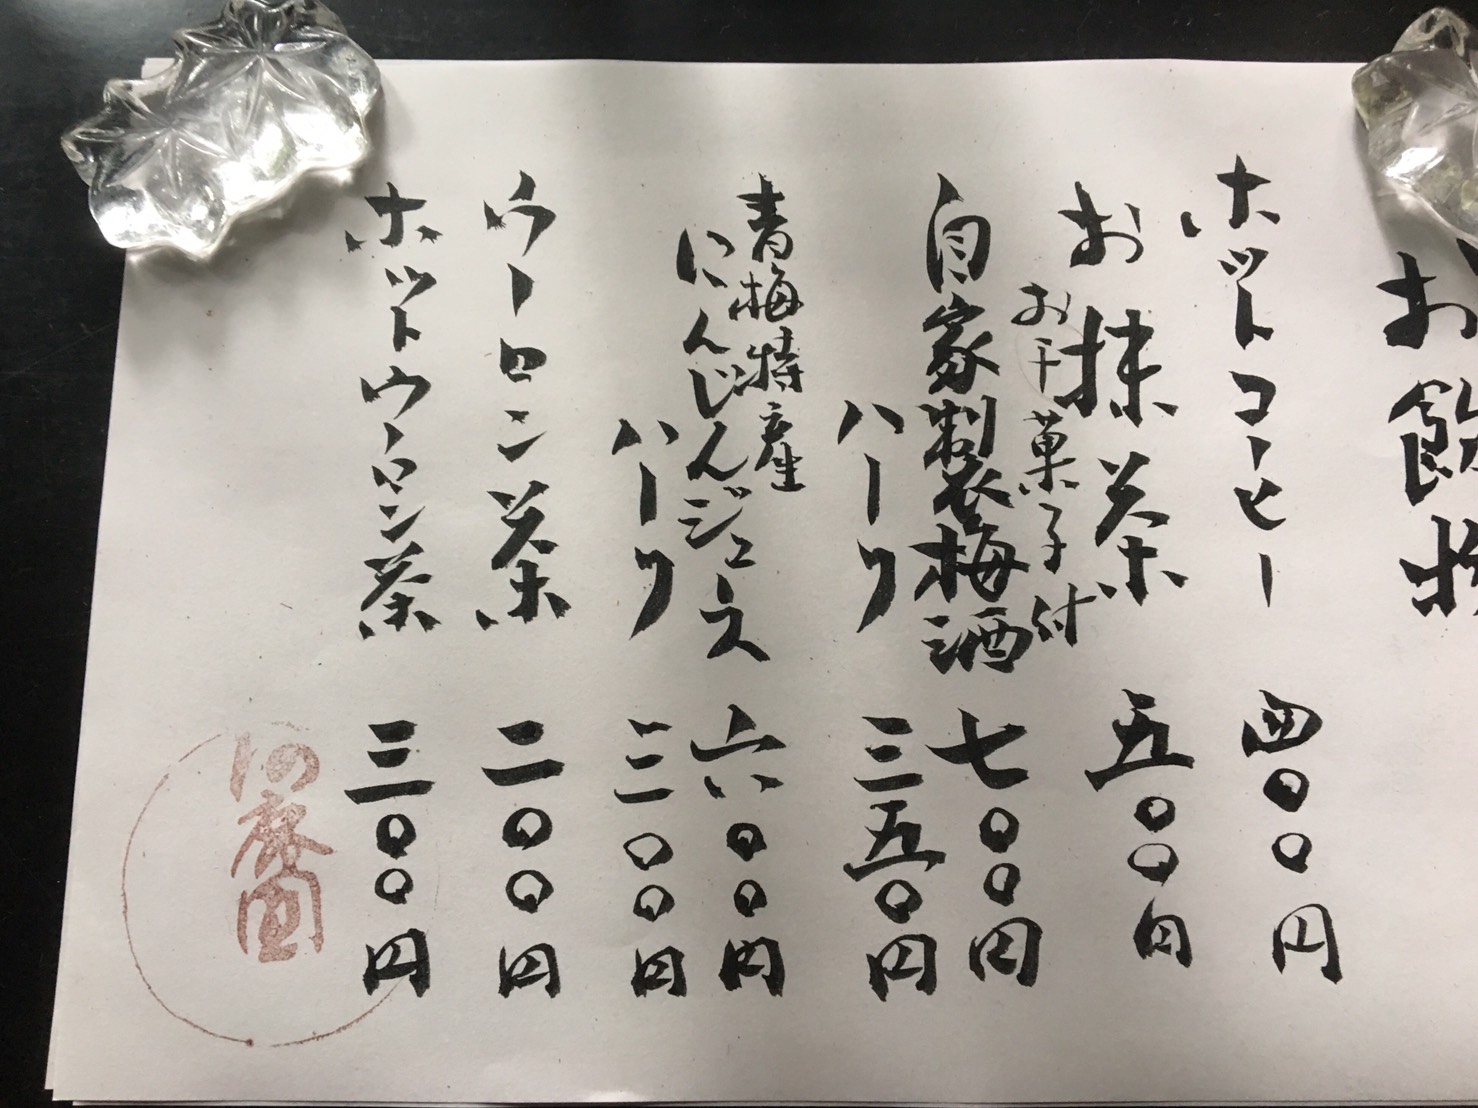 お飲物
ホットコーヒー 四〇〇円
お抹茶 五〇〇円
お干菓子付
自家製梅酒 七〇〇円
ハーフ 三五〇円
青梅特産
にんじんジュース 六〇〇円
ハーフ 三〇〇円
ウーロン茶 二〇〇円
ホットウーロン茶 三〇〇円